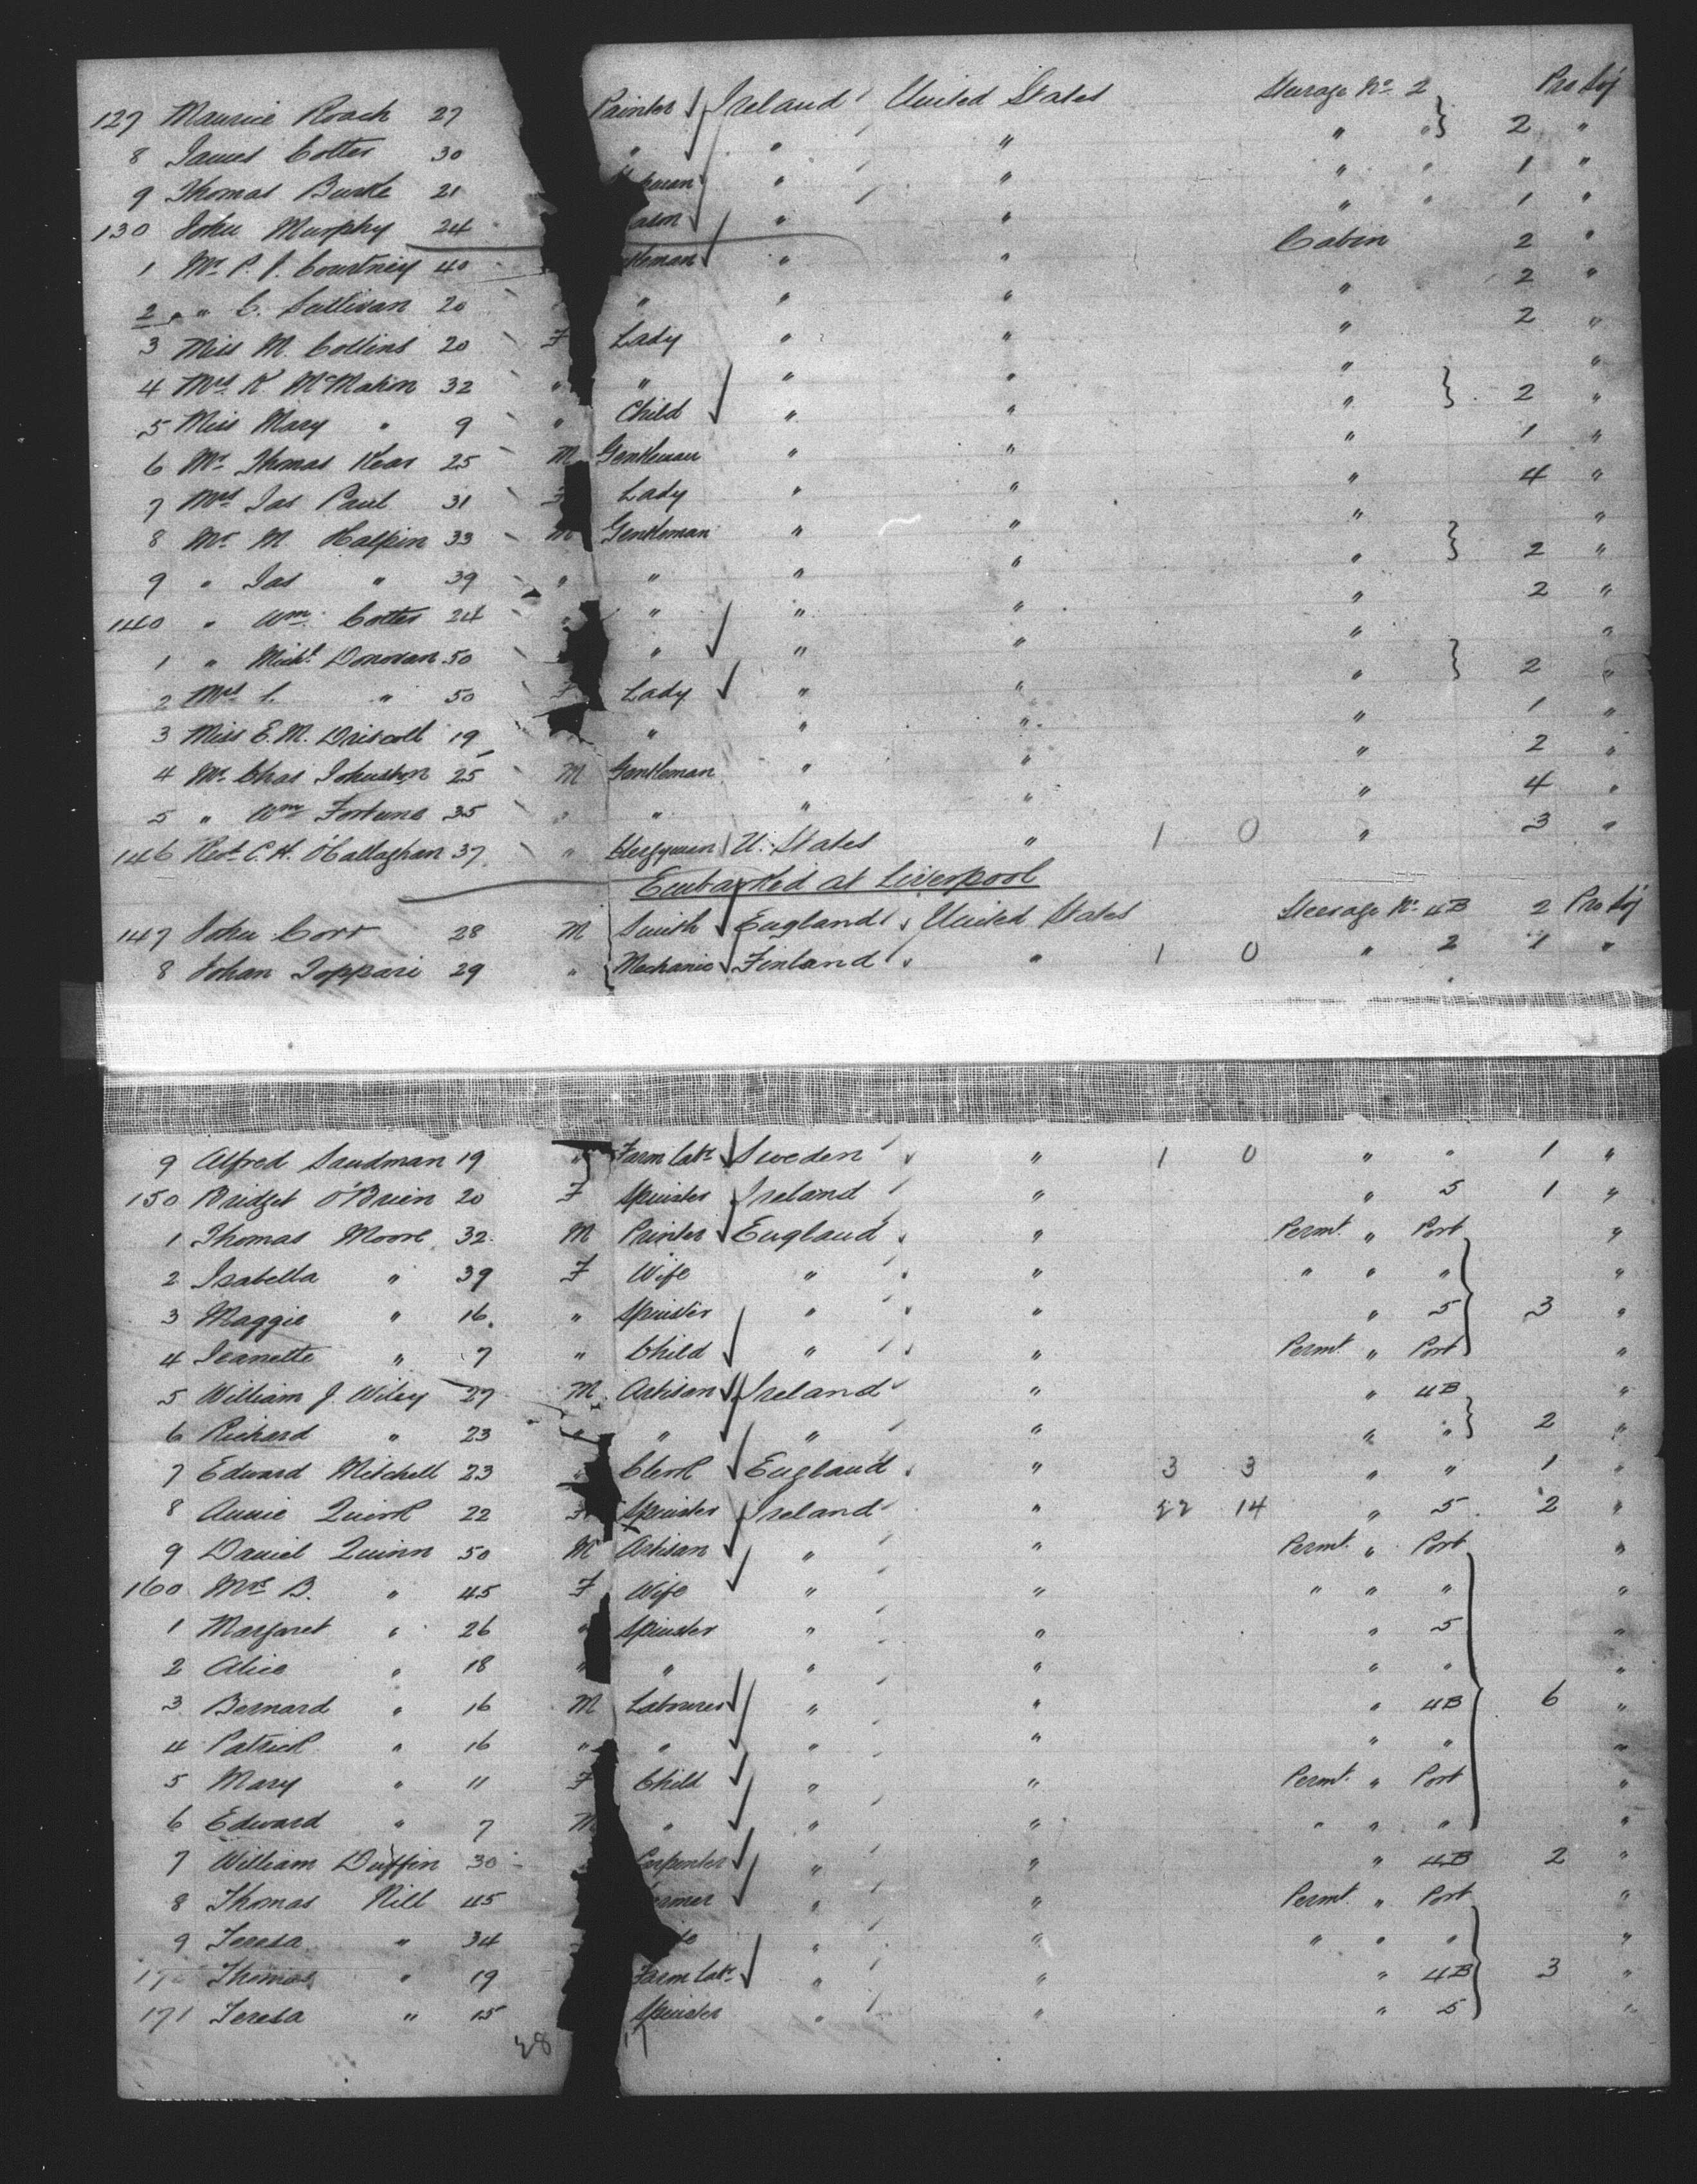 127 Maurice Roach 27 Painter Ireland United States Steerage No. 2 Pro Soj
8 James Cotter 30 " " " " " 2 "
9 Thomas Burke 21 " " " " 1 "
130 John Murphy 24 " " " " 1 "
1 Mr P. J. Courtney 40 " " Cabin 2 "
2 " C. Sullivan 20 " " " " 2 "
3 Miss M. Collins 20 F Lady " " " 2 "
4 Mrs K. McMahon 32 " " " " " "
5 Miss Mary " 9 " Child " " " 2 "
6 Mr Thomas Kear 25 M Gentleman " " " 1 "
7 Mrs Jas Paul 31 F Lady " " " 4 "
8 Mr M. Halpin 33 M Gentleman " " " "
9 " Jas " 39 " " " " " 2 "
140 " Wm Cotter 24 " " " " " 2 "
1 " Michl Donovan 50 " " " " "
2 Mrs " 50 F Lady " " " 2 "
3 Miss E. M. Driscoll 19 " " " " 1 "
4 Mr Chas Johnston 25 M Gentleman " " " 2 "
5 " Wm Fortune 35 " " " " " 4 "
146 Revd C. H. O'Callaghan 37 " Clergyman U. States " 1 0 " 3 "
Embarked at Liverpool
147 John Corr 28 M Smith England United States Steerage No. 4B 2 Pro Soj
8 Johan Toppari 29 " Mechanic Finland " 1 0 " 2 1 "
9 Alfred Sandman 19 " Farm Labr Sweden " 1 0 " " 1 "
150 Bridget O'Brien 20 F Spinster Ireland " " 5 1 "
1 Thomas Moore 32 M Printer England " Permt. " Port "
2 Isabella " 39 F Wife " " " " " "
3 Maggie " 16 " Spinster " " " 5 3 "
4 Jeanette " 7 " Child " " Permt. " Port "
5 William J. Wiley 27 M Artisan Ireland " " 4B "
6 Richard " 23 " " " " " " 2 "
7 Edward Mitchell 23 " Clerk England " 3 3 " " 1 "
8 Annie Quirk 22 F Spinster Ireland " 14 " 5 2 "
9 Daniel Quinn 50 M Artisan " " Permt. " Port "
160 Mrs B. " 45 F Wife " " " " " "
1 Margaret " 26 " Spinster " " " 5 "
2 Alice " 18 " " " " " " "
3 Bernard " 16 M Labourer " " " 4B 6 "
4 Patrick " 16 " " " " " " "
5 Mary " 11 F Child " " Permt. " Port "
6 Edward " 7 M " " " " " " "
7 William Duffin 30 Carpenter " " " 4B 2 "
8 Thomas Nill 45 " " Permt. " Port "
9 Teresa " 34 " " " " " "
Thomas " 19 Farm Labr " " " 4B 3 "
171 Teresa " 15 Spinster " " " 5 "